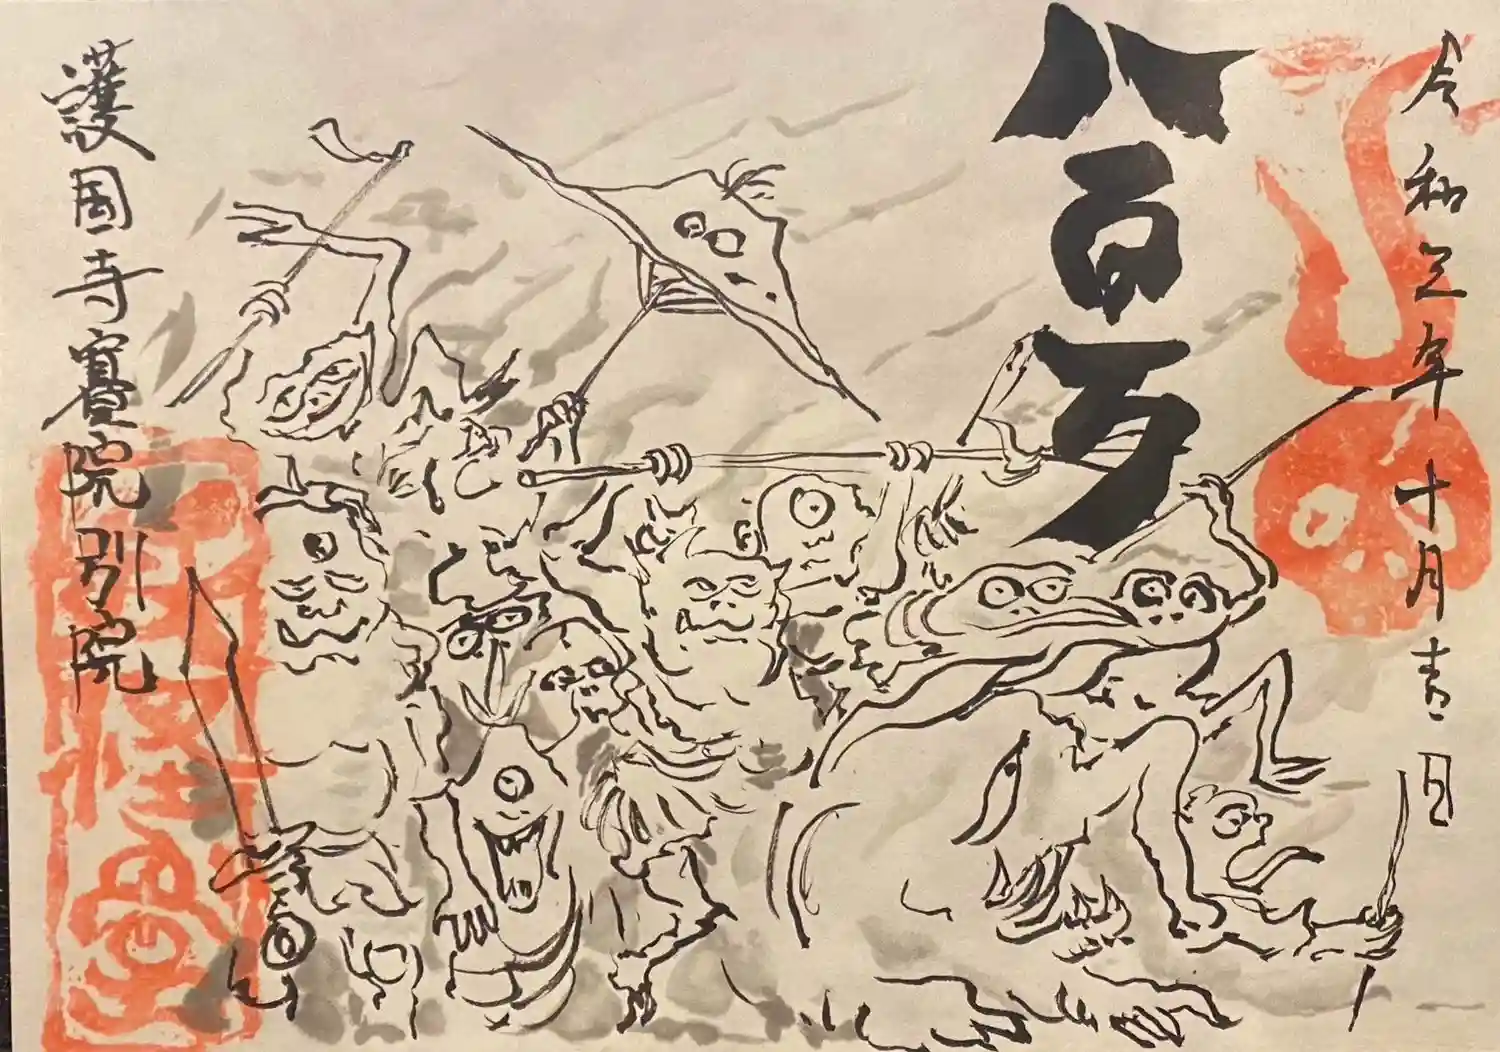 令和三年十月吉日
八百万
護国寺賽院別院